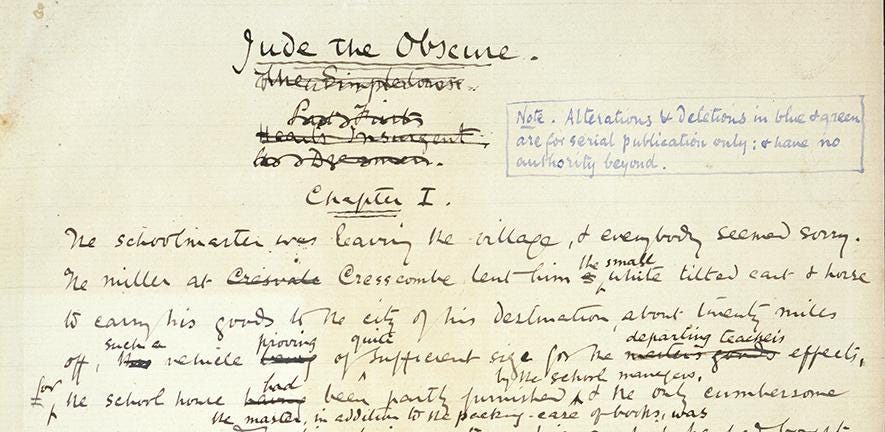 Jude the Obscure.
The Simpletons.
Part First
Hearts Insurgent.
Chapter I.
Note. Alterations & deletions in blue & green
are for serial publication only: & have no
authority beyond.
The schoolmaster was leaving the village, & everybody seemed sorry.
the small
The miller at Cresvale Cresscombe lent him a white tilted cart & horse
to carry his goods to the city of his destination, about twenty miles
such a proving quite departing teacher's
off, this vehicle being of sufficient size for the master's goods effects,
for had by the school managers,
the school house having been partly furnished & the only cumbersome
the master, in addition to the packing-case of books, was